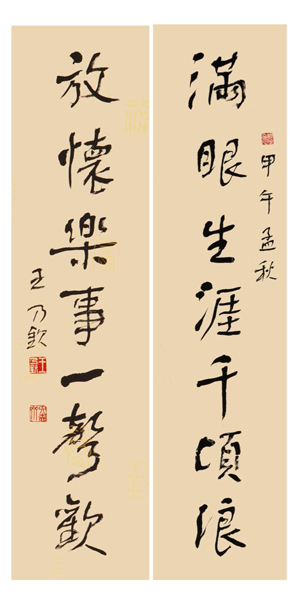 甲午孟秋
滿眼生涯千頃浪
放懷樂事一聲歡
王乃欽